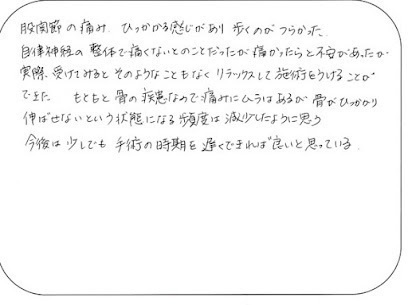 股関節の痛み、ひっかかる感じがあり 歩くのが つらかった
自律神経の 整体で痛くないとのことだったが 痛かったらと不安があったが
実際、受けてみると そのようなこともなく リラックスして 施術をうけることが
できた　もともと 骨の疾患なので痛みにムラはあるが 骨がひっかかり
伸ばせないという状態になる 頻度は 減少したように思う
今後は 少しでも 手術の時期を 遅くできれば良いと思っている.